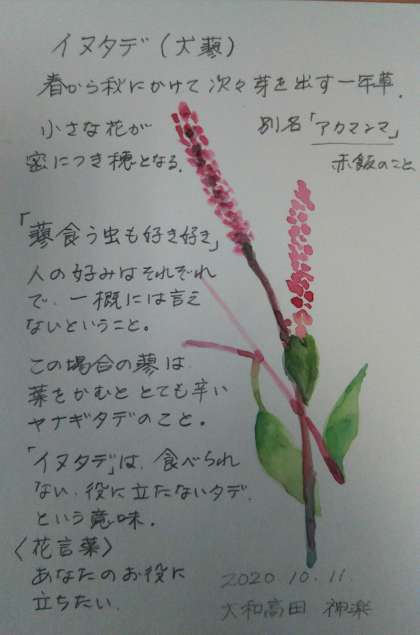 イヌタデ(犬蓼)
春から秋にかけて次々芽を出す一年草.
小さな花が
密につき穂となる.
別名「アカマンマ」
赤飯のこと
「蓼食う虫も好き好き」
人の好みはそれぞれ
で、一概には言え
ないということ。
この場合の蓼は
葉をかむととても辛い
ヤナギタデのこと。
「イヌタデ」は、食べられ
ない、役に立たないタデ.
という意味.
〈花言葉〉
あなたのお役に
立ちたい.
2020.10.11.
大和高田 神楽